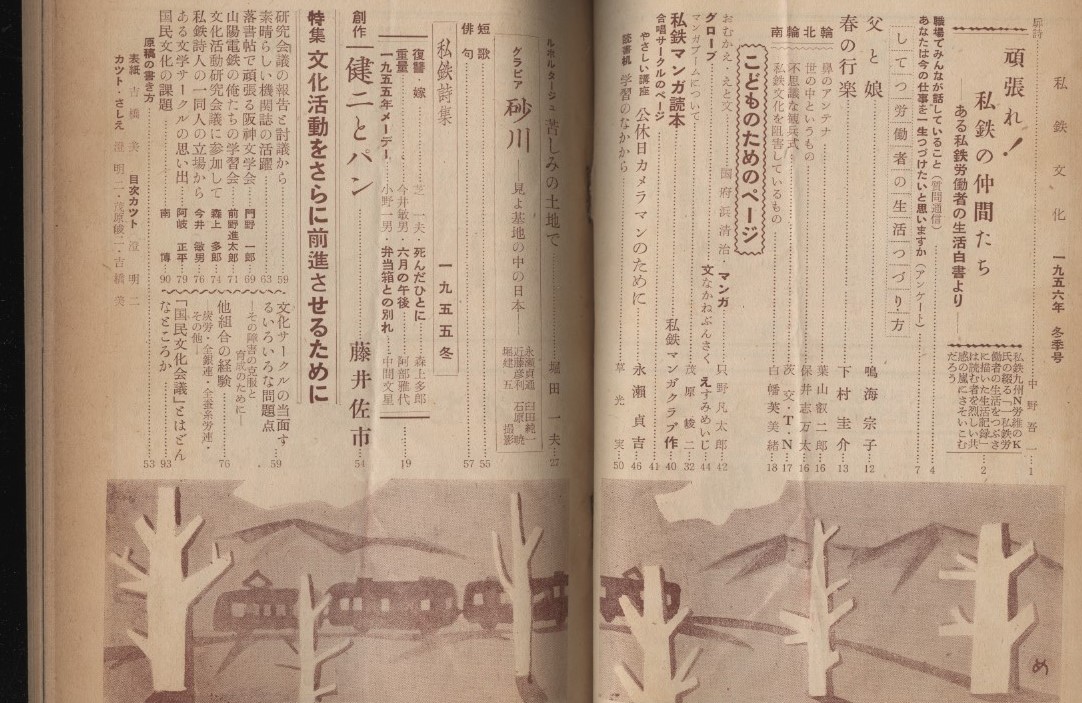 私鉄文化 一九五六年 冬季号
扉詩 頑張れ！ 中野吾一…1
私鉄の仲間たち
――ある私鉄労働者の生活白書より…2
私鉄九州N労維のK
氏の綴る「一私鉄労
働者の生活をつぶさ
に描いた生活記録」
は読む者を烈しい共
感の嵐にさそいこむ
だろう
職場でみんなが話していること（質問通信）…4
あなたは今の仕事を一生つづけたいと思いますか（アンケート）…7
してつ労働者の生活つづり方
父と娘 鳴海宗子…12
春の行楽 下村圭介…13
輪 鼻のアンテナ 葉山叡二郎…16
北 世の中というもの 保井志万太…16
輪 不思議な観兵式 茨交・T・N…17
南 私鉄文化を阻害しているもの 白幡芙美緒…18
こどものためのページ
おむかえ・えと文 国府浜清治・マンガ 只野凡太郎…42
グローブ 文なかねぶんさく、えすみめいじ…44
マンガブームについて 茂原崚二…32
私鉄マンガ読本 私鉄マンガクラブ作…40
合唱サークルのページ…41
やさしい講座 公休日カメラマンのために 永瀬貞吉…46
読書机 学習のなかから 草光実…50
ルポルタージュ 苦しみの土地で 堀田一夫…27
グラビア 砂川 見よ基地の中の日本――
永瀬貞通 臼田純一
近藤彦利 石原暁
堀建五 撮影
短歌…55
俳句…57
私鉄詩集 一九五五冬
復讐・嫁 芝一夫・死んだひとに 森上多郎
重量 今井敏男・六月の午後 阿部雅代…19
一九五五年メーデー 小野一男・弁当箱との別れ 中間文星
創作 健二とパン 藤井佐市…54
特集 文化活動をさらに前進させるために
研究会議の報告と討議から…59
素晴らしい機関誌の活躍…63
落書帖で頑張る阪神文学会 門野一郎…69
山陽電鉄の俺たちの学習会 前野進太郎…71
文化活動研究会議に参加して 森上多郎…74
私鉄詩人の一同人の立場から 今井敏男…76
ある文学サークルの思い出 阿岐正平…79
国民文化の課題 南博…90
文化サークルの当面す
るいろいろな問題点…59
――その障害の克服と
育成のために――
他組合の経験…76
――炭労・全銀連・全蚕糸労連・
その他――
「国民文化会議」とはどん
なところか…93
原稿の書き方…53
表紙 吉橋 美 目次カット 澄明二
カツト・さしえ 澄明二・茂原崚二・吉橋 美
め